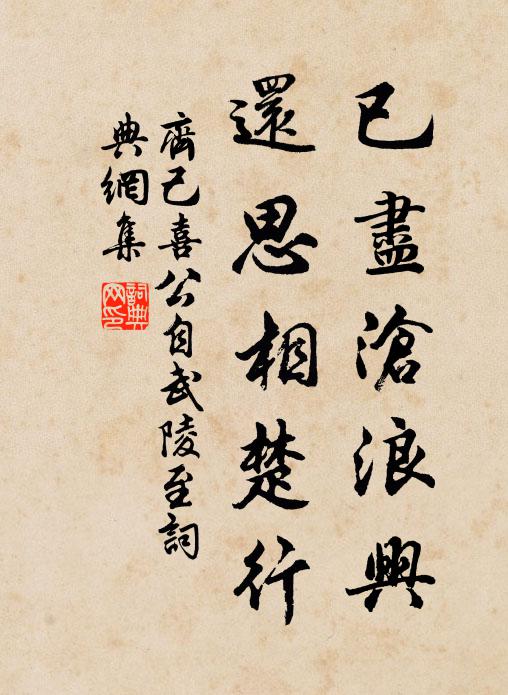 已盡滄浪興
還思相楚行
齊己喜公自武陵至詞
典網集
詞典網印